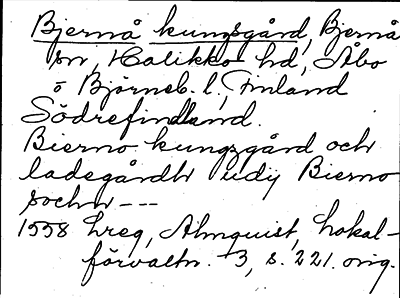 Bjernå kungsgård, Bjernå
sn, Halikko hd, Åbo
o Björneb. l., Finland
Södrefindland.
Bierno kungzgård och
ladegårdh udij Bierno
sochn ---
1558 Lreg, Almquist, Lokal-
förvaltn. 3, s. 221. orig.